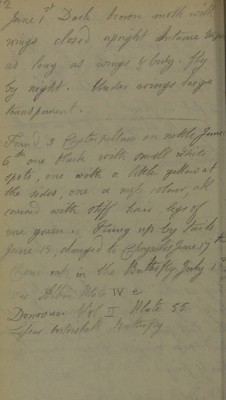 2
June 1st Dark brown moth with
wings closed upright antennæ
as long as wings & body. fly
by night. Under wings large
transparent.
Found 3 Caterpillars on nettle June
6th one black with small white
spots, one with a little yellow at
the sides, one a colour, all
covered with stiff hair, legs of
one green. hung up by tails
June 15, changed to Chrysalis June 17th
Came out in the Butterfly July 1
Albin Plate IV e
Donovan Vol II Plate 55
Lesser tortoiseshell Butterfly